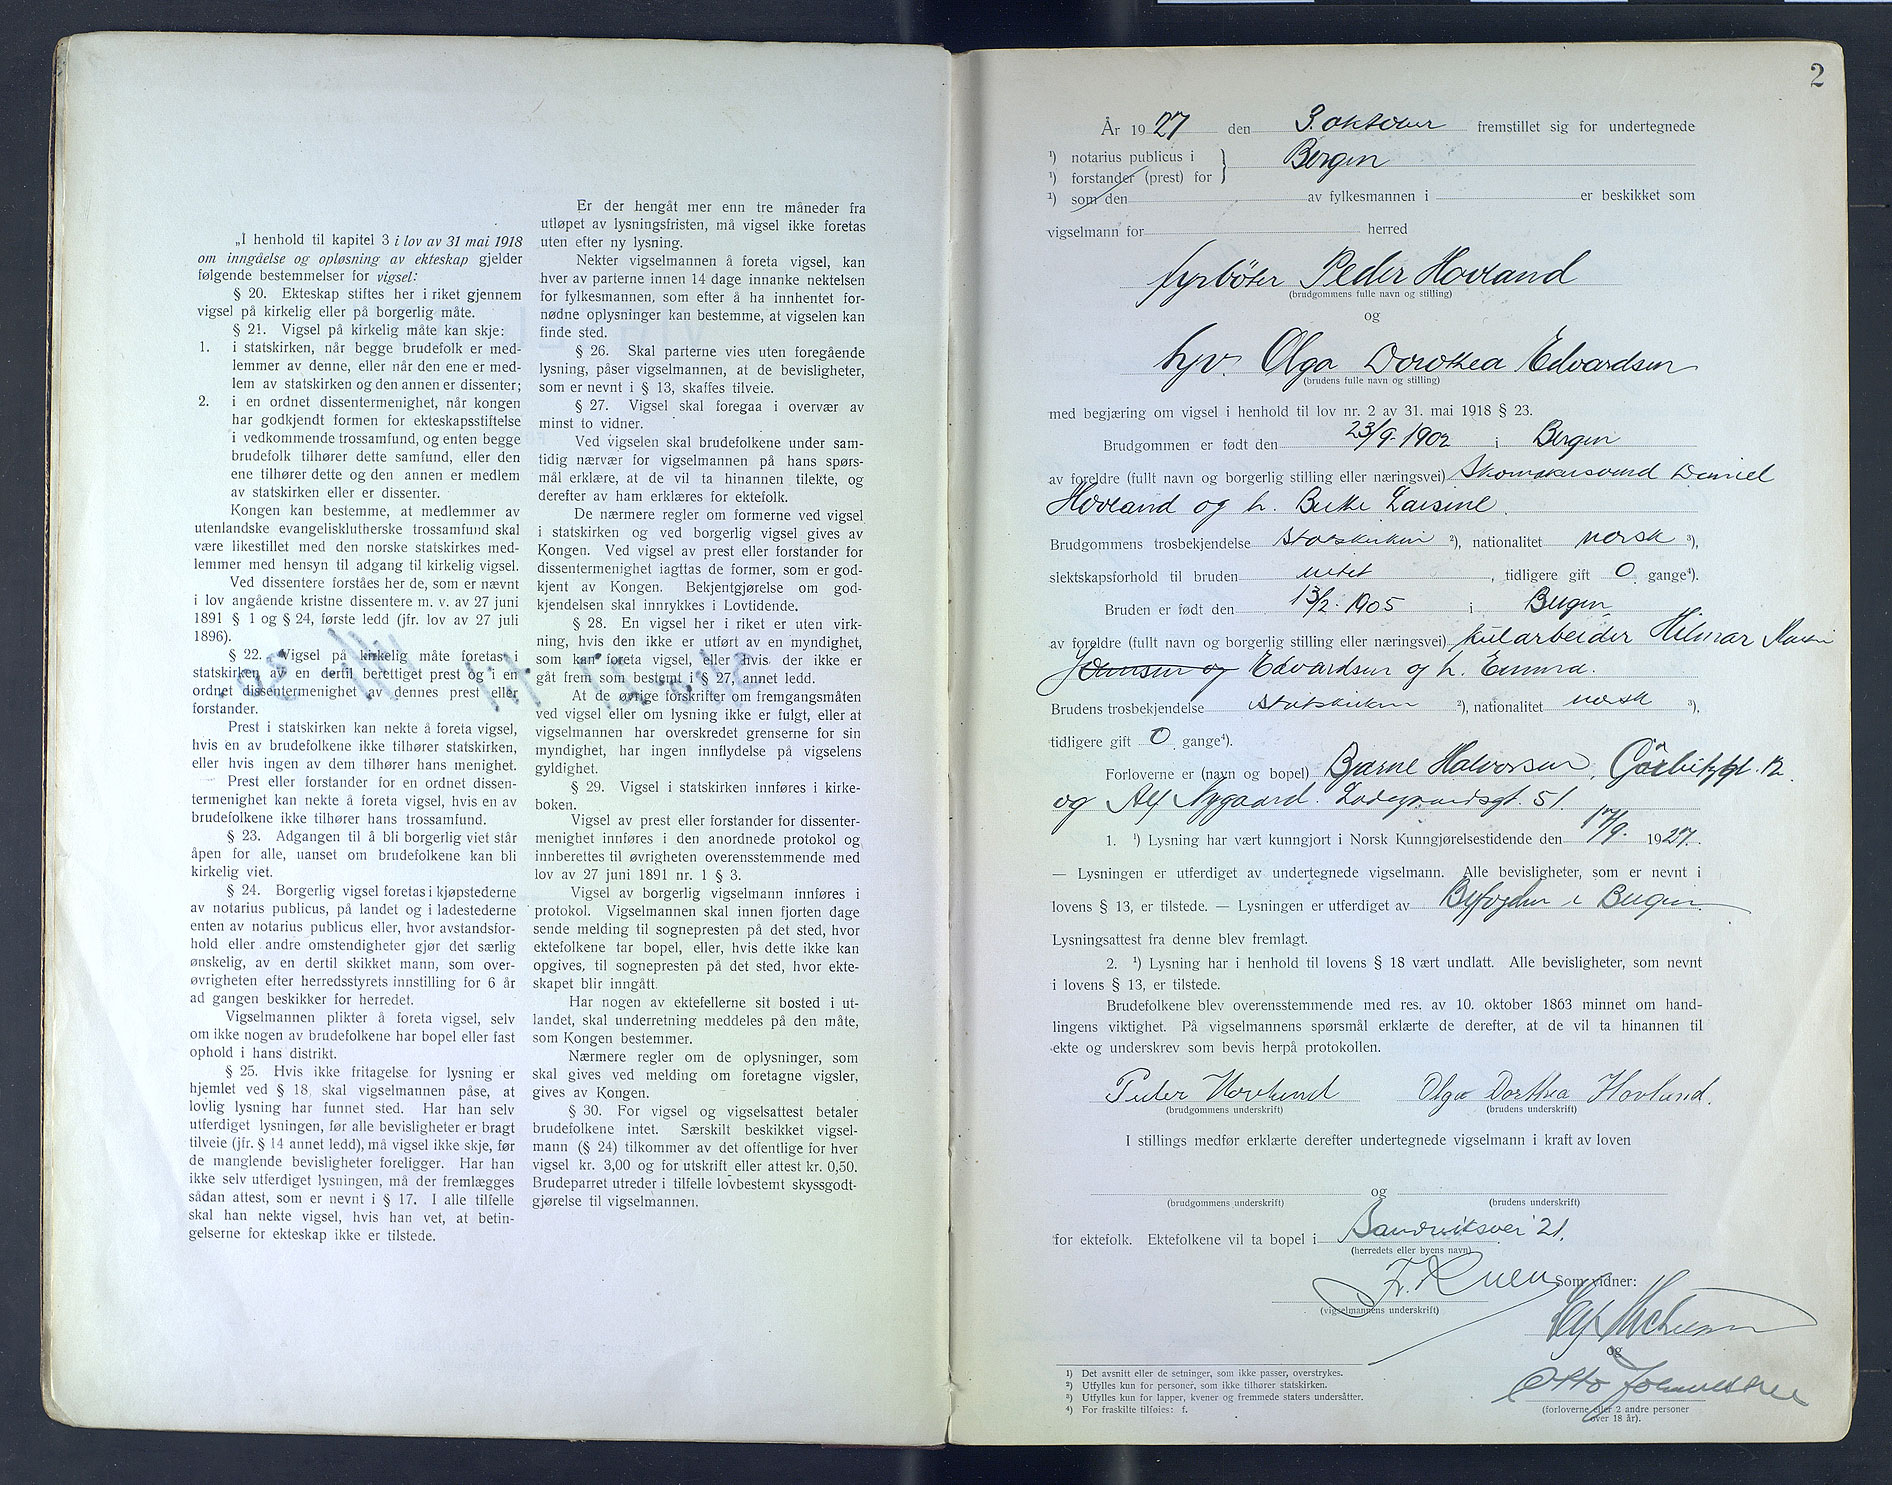 „I henhold til kapitel 3 i lov av 31 mai 1918
om inngåelse og opløsning av ekteskap gjelder
følgende bestemmelser for vigsel:
§ 20. Ekteskap stiftes her i riket gjennem
vigsel på kirkelig eller på borgerlig måte.
§ 21. Vigsel på kirkelig måte kan skje:
1. i statskirken, når begge brudefolk er med-
lemmer av denne, eller når den ene er med-
lem av statskirken og den annen er dissenter;
2. i en ordnet dissentermenighet, når kongen
har godkjendt formen for ekteskapsstiftelse
i vedkommende trossamfund, og enten begge
brudefolk tilhører dette samfund, eller den
ene tilhører dette og den annen er medlem
av statskirken eller er dissenter.
Kongen kan bestemme, at medlemmer av
utenlandske evangelisklutherske trossamfund skal
være likestillet med den norske statskirkes med-
lemmer med hensyn til adgang til kirkelig vigsel.
Ved dissentere forståes her de, som er nævnt
i lov angående kristne dissentere m. v. av 27 juni
1891 § 1 og § 24, første ledd (jfr. lov av 27 juli
1896).
§ 22. Vigsel på kirkelig måte foretas i
statskirken av en dertil berettiget prest og i en
ordnet dissentermenighet av dennes prest eller
forstander.
Prest i statskirken kan nekte å foreta vigsel,
hvis en av brudefolkene ikke tilhører statskirken,
eller hvis ingen av dem tilhører hans menighet.
Prest eller forstander for en ordnet dissen-
termenighet kan nekte å foreta vigsel, hvis en av
brudefolkene ikke tilhører hans trossamfund.
§ 23. Adgangen til å bli borgerlig viet står
åpen for alle, uanset om brudefolkene kan bli
kirkelig viet.
§ 24. Borgerlig vigsel foretas i kjøpstederne
av notarius publicus, på landet og i ladestederne
enten av notarius publicus eller, hvor avstandsfor-
hold eller andre omstendigheter gjør det særlig
ønskelig, av en dertil skikket mann, som over-
øvrigheten efter herredsstyrets innstilling for 6 år
ad gangen beskikker for herredet.
Vigselmannen plikter å foreta vigsel, selv
om ikke nogen av brudefolkene har bopel eller fast
ophold i hans distrikt.
§ 25. Hvis ikke fritagelse for lysning er
hjemlet ved § 18, skal vigselmannen påse, at
lovlig lysning har funnet sted. Har han selv
utferdiget lysningen, før alle bevisligheter er bragt
tilveie (jfr. § 14 annet ledd), må vigsel ikke skje, før
de manglende bevisligheter foreligger. Har han
ikke selv utferdiget lysningen, må der fremlægges
sådan attest, som er nevnt i § 17. I alle tilfelle
skal han nekte vigsel, hvis han vet, at betin-
gelserne for ekteskap ikke er tilstede.
Er der hengåt mer enn tre måneder fra
utløpet av lysningsfristen, må vigsel ikke foretas
uten efter ny lysning.
Nekter vigselmannen å foreta vigsel, kan
hver av parterne innen 14 dage innanke nektelsen
for fylkesmannen, som efter å ha innhentet for-
nødne oplysninger kan bestemme, at vigselen kan
finde sted.
§ 26. Skal parterne vies uten foregående
lysning, påser vigselmannen, at de bevisligheter,
som er nevnt i § 13, skaffes tilveie.
§ 27. Vigsel skal foregaa i overvær av
minst to vidner.
Ved vigselen skal brudefolkene under sam-
tidig nærvær for vigselmannen på hans spørs-
mål erklære, at de vil ta hinannen tilekte, og
derefter av ham erklæres for ektefolk.
De nærmere regler om formerne ved vigsel
i statskirken og ved borgerlig vigsel gives av
Kongen. Ved vigsel av prest eller forstander for
dissentermenighet iagttas de former, som er god-
kjent av Kongen. Bekjentgjørelse om god-
kjendelsen skal innrykkes i Lovtidende.
§ 28. En vigsel her i riket er uten virk-
ning, hvis den ikke er utført av en myndighet,
som kan foreta vigsel, eller hvis der ikke er
gåt frem som bestemt i § 27, annet ledd.
At de øvrige forskrifter om fremgangsmåten
ved vigsel eller om lysning ikke er fulgt, eller at
vigselmannen har overskredet grenserne for sin
myndighet, har ingen innflydelse på vigselens
gyldighet.
§ 29. Vigsel i statskirken innføres i kirke-
boken.
Vigsel av prest eller forstander for dissenter-
menighet innføres i den anordnede protokol og
innberettes til øvrigheten overensstemmende med
lov av 27 juni 1891 nr. 1 § 3.
Vigsel av borgerlig vigselmann innføres i
protokol. Vigselmannen skal innen fjorten dage
sende melding til sognepresten på det sted, hvor
ektefolkene tar bopel, eller, hvis dette ikke kan
opgives, til sognepresten på det sted, hvor ekte-
skapet blir inngått.
Har nogen av ektefellerne sit bosted i ut-
landet, skal underretning meddeles på den måte,
som Kongen bestemmer.
Nærmere regler om de oplysninger, som
skal gives ved melding om foretagne vigsler,
gives av Kongen.
§ 30. For vigsel og vigselsattest betaler
brudefolkene intet. Særskilt beskikket vigsel-
mann (§ 24) tilkommer av det offentlige for hver
vigsel kr. 3,00 og for utskrift eller attest kr. 0,50.
Brudeparret utreder i tilfelle lovbestemt skyssgodt-
gjørelse til vigselmannen.
2
År 1927 den 3. oktober fremstillet sig for undertegnede
¹) notarius publicus i } Bergen
¹) forstander (prest) for
¹) som den av fylkesmannen i er beskikket som
vigselmann for herred
fyrbøter Peder Hovland
(brudgommens fulle navn og stilling)
og
syv. Olga Dorothea Edvardsen
(brudens fulle navn og stilling)
med begjæring om vigsel i henhold til lov nr. 2 av 31. mai 1918 § 23.
Brudgommen er født den 23/9-1902 i Bergen
av foreldre (fullt navn og borgerlig stilling eller næringsvei) Skomakersvend Daniel
Hovland og h. Berte Larsine.
Brudgommens trosbekjendelse Statskirken ²), nationalitet norsk ³),
slektskapsforhold til bruden intet, tidligere gift 0 gange⁴).
Bruden er født den 13/2. 1905 i Bergen
av foreldre (fullt navn og borgerlig stilling eller næringsvei) kularbeider Hilmar
Edvardsen og h. Emma.
Brudens trosbekjendelse Statskirken ²), nationalitet norsk ³),
tidligere gift 0 gange⁴).
Forloverne er (navn og bopel) Bjarne Halvorsen,
og Alf Nygaard. Ladegaardsgt. 51.
1. ¹) Lysning har vært kunngjort i Norsk Kunngjørelsestidende den 17/9. 1927.
— Lysningen er utferdiget av undertegnede vigselmann. Alle bevisligheter, som er nevnt i
lovens § 13, er tilstede. — Lysningen er utferdiget av Byfogden i Bergen.
Lysningsattest fra denne blev fremlagt.
2. ¹) Lysning har i henhold til lovens § 18 vært undlatt. Alle bevisligheter, som nevnt
i lovens § 13, er tilstede.
Brudefolkene blev overensstemmende med res. av 10. oktober 1863 minnet om hand-
lingens viktighet. På vigselmannens spørsmål erklærte de derefter, at de vil ta hinannen til
ekte og underskrev som bevis herpå protokollen.
Peder Hovland Olga Dorthea Hovland.
(brudgommens underskrift) (brudens underskrift)
I stillings medfør erklærte derefter undertegnede vigselmann i kraft av loven
og
(brudgommens underskrift) (brudens underskrift)
for ektefolk. Ektefolkene vil ta bopel i Sandviksvei 21.
(herredets eller byens navn)
Som vidner:
(vigselmannens underskrift)
og
Otto
(forloverne eller 2 andre personer
over 18 år).
¹) Det avsnitt eller de setninger, som ikke passer, overstrykes.
²) Utfylles kun for personer, som ikke tilhører statskirken.
³) Utfylles kun for lapper, kvener og fremmede staters undersåtter.
⁴) For fraskilte tilføies: f.